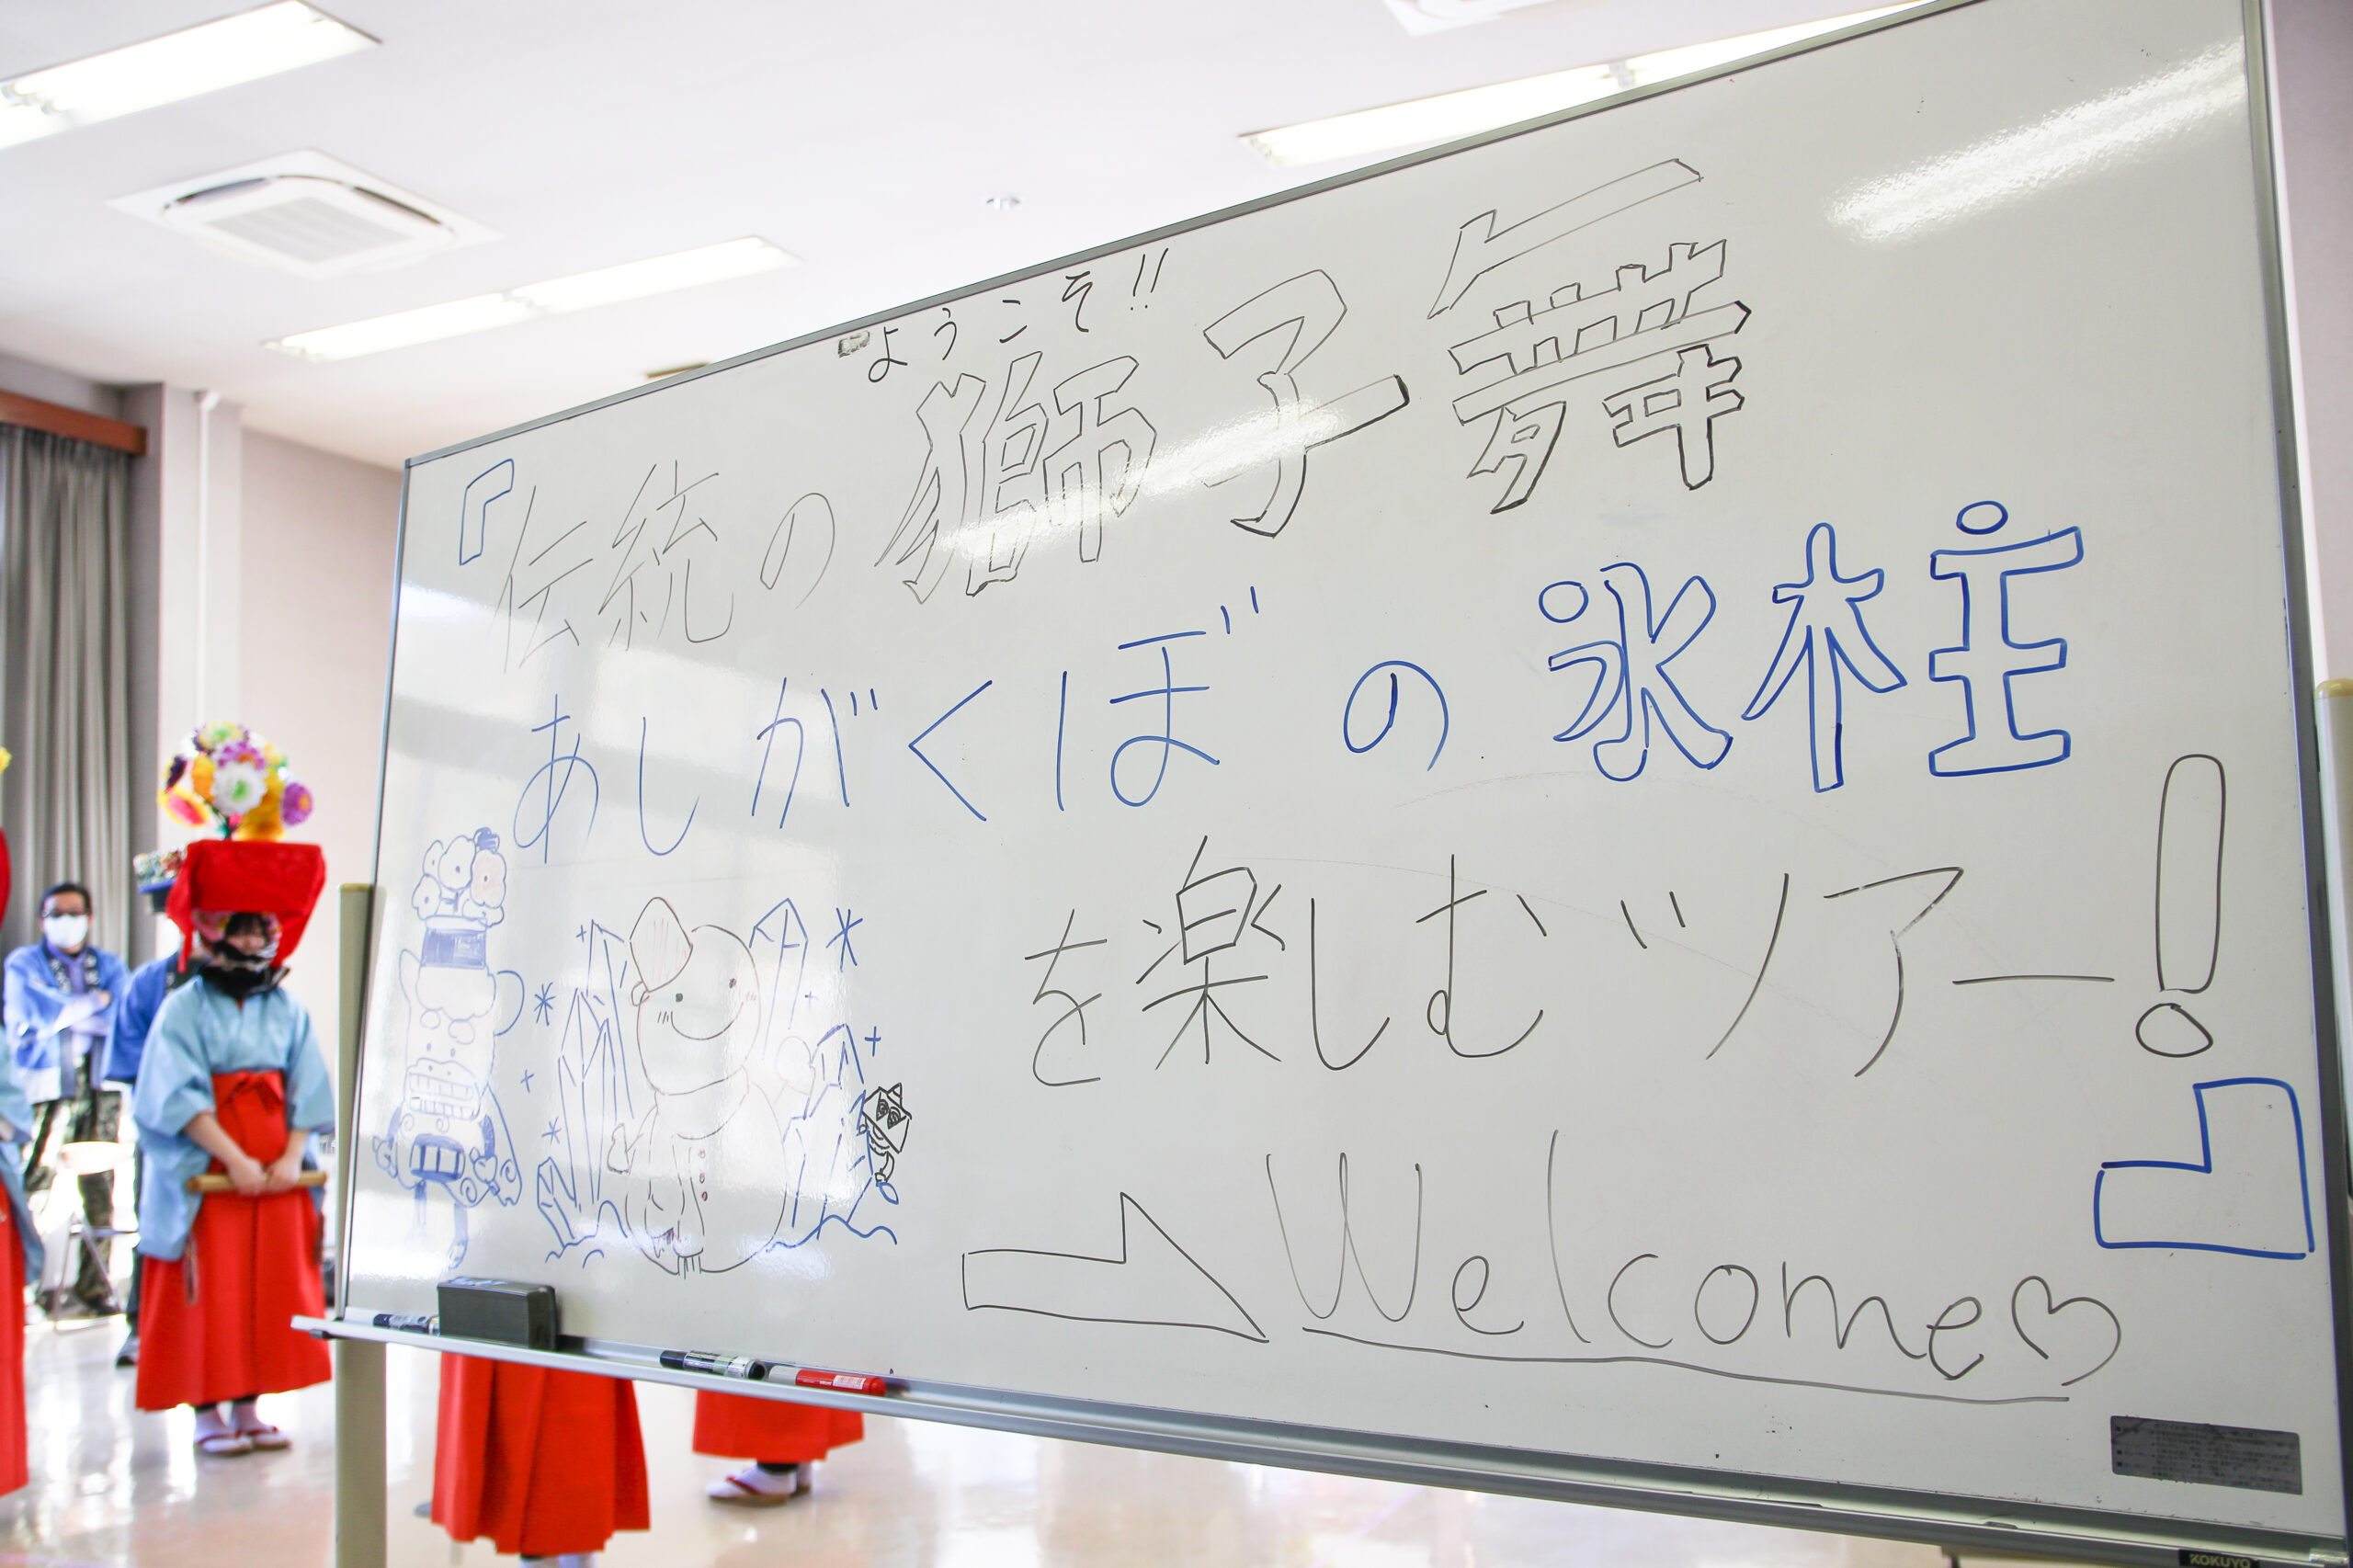 ようこそ!!
「伝統の獅子舞
あしがくぼの氷柱
を楽しむツアー!」
Welcome♡
KOKUYO